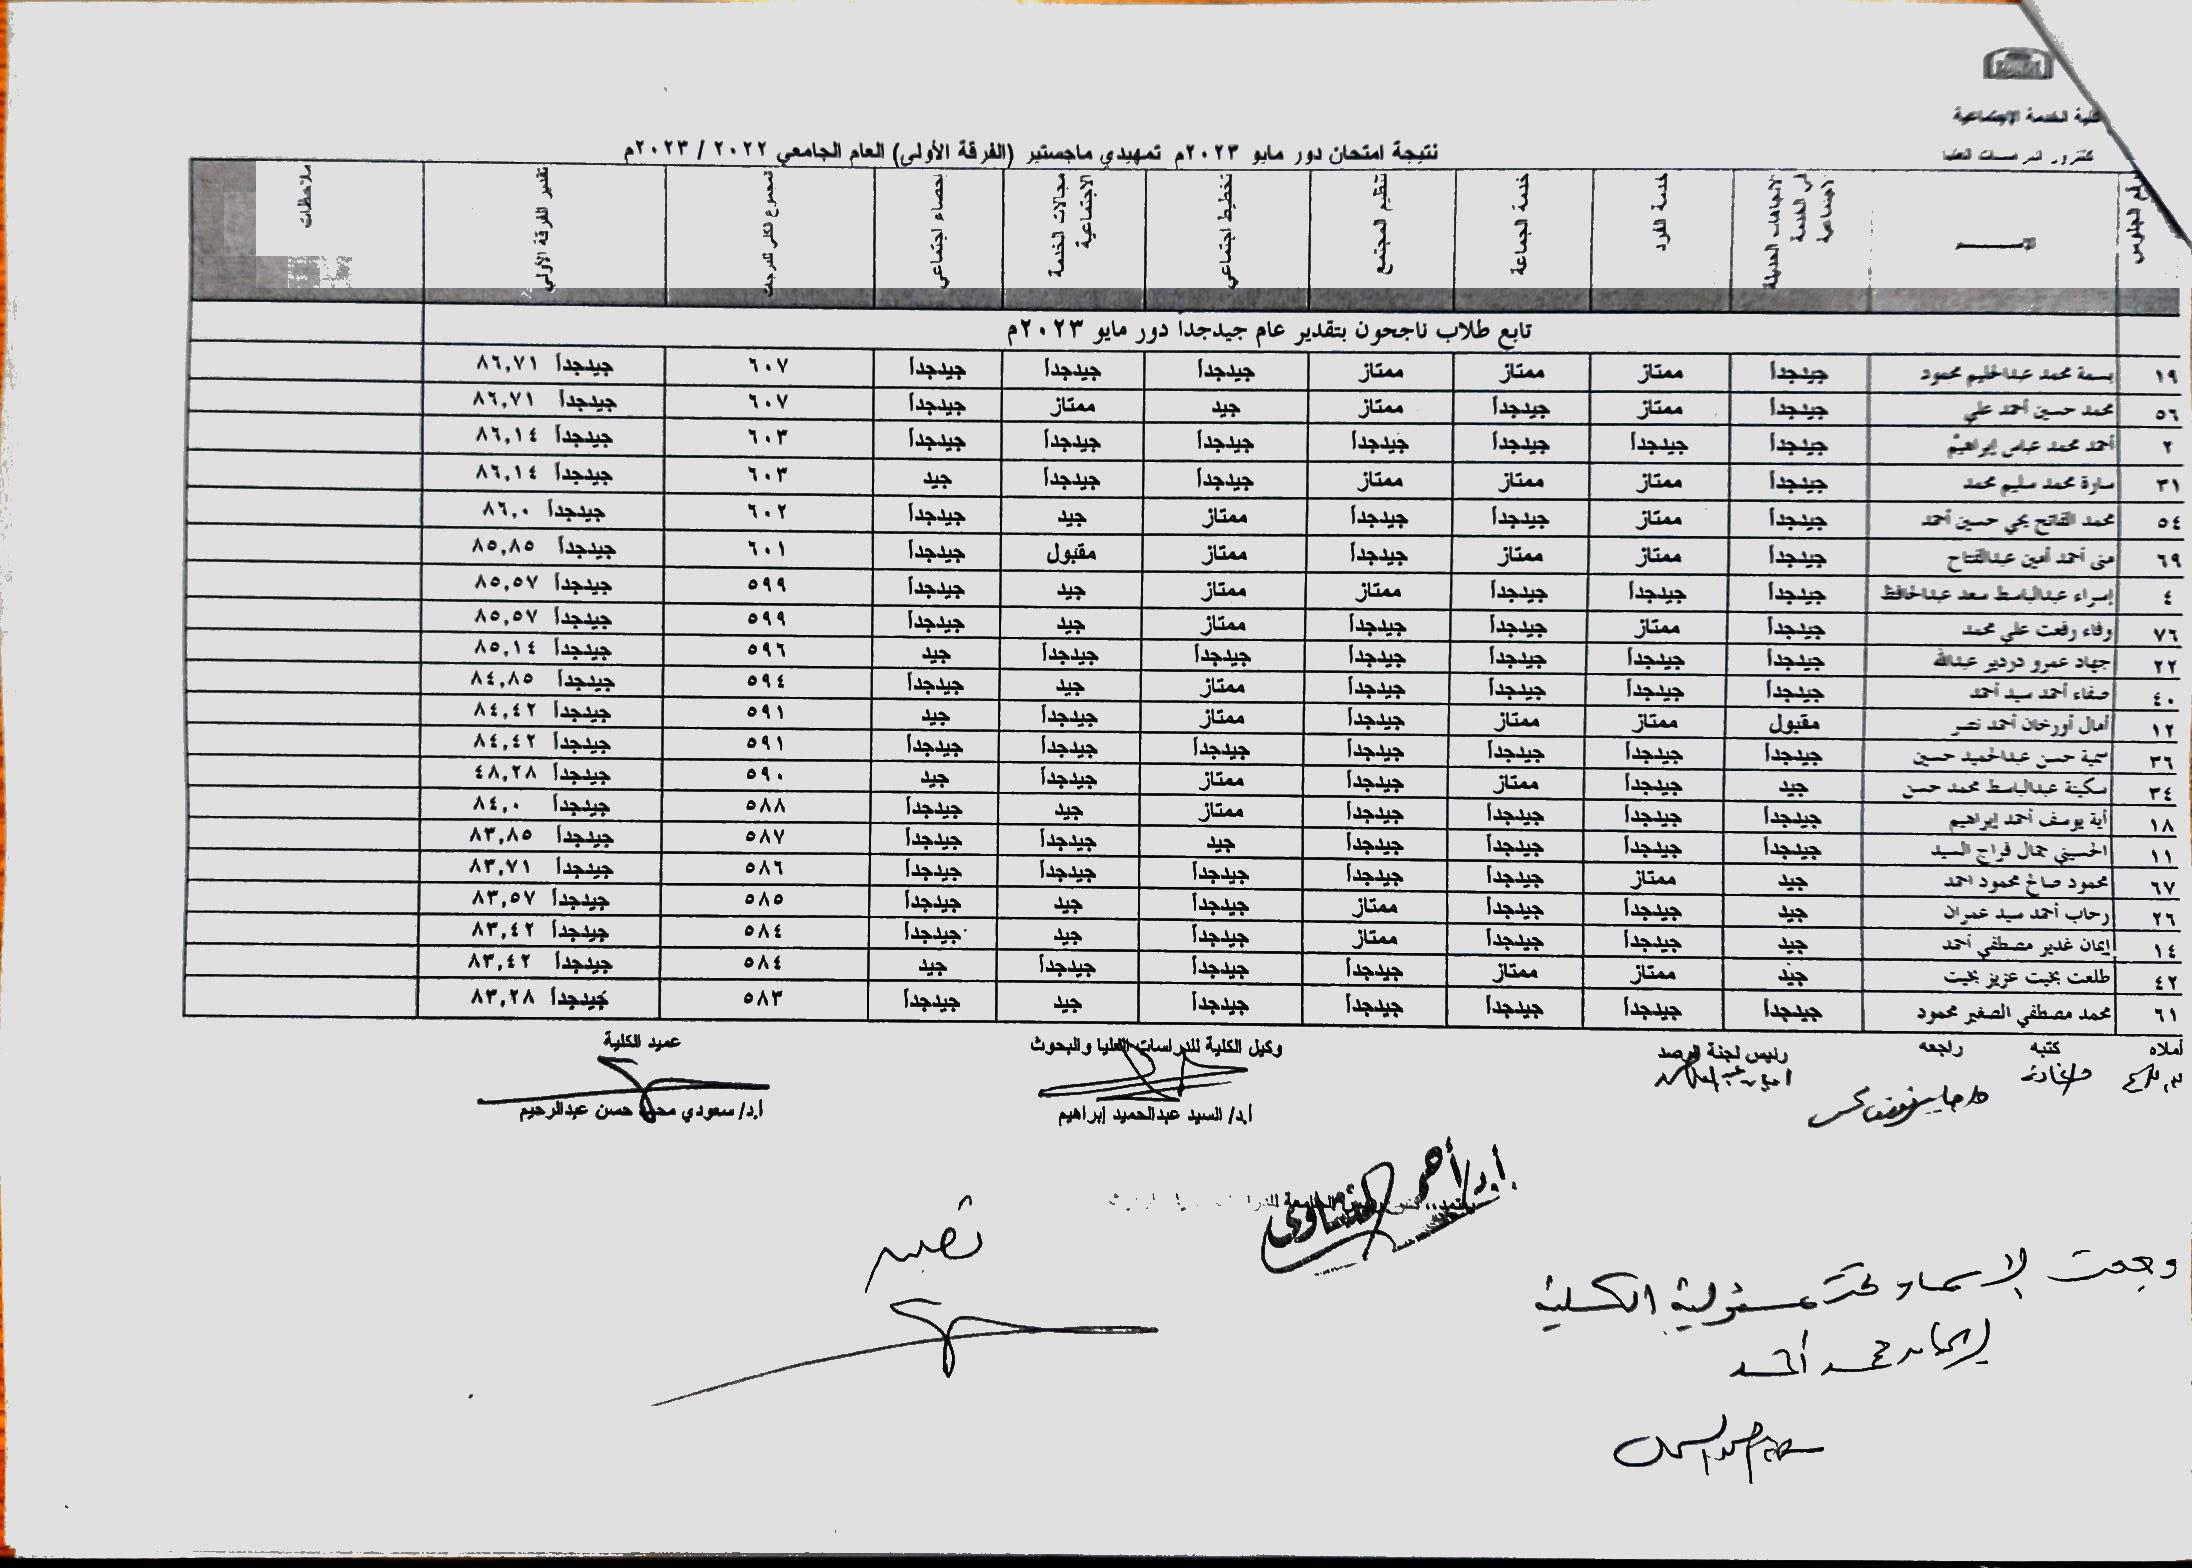 كلية الخدمة الاجتماعية
كنترول الدراسات العليا
نتيجة امتحان دور مايو ٢٠٢٣م تمهيدي ماجستير (الفرقة الأولى) العام الجامعي ٢٠٢٢ / ٢٠٢٣م
رقم الجلوس الاســـــم الاتجاهات الحديثة في الخدمة الاجتماعية خدمة الفرد خدمة الجماعة تنظيم المجتمع تخطيط اجتماعي مجالات الخدمة الاجتماعية احصاء اجتماعي المجموع الكلي للدرجات تقدير الفرقة الأولي ملاحظات
تابع طلاب ناجحون بتقدير عام جيدجداً دور مايو ٢٠٢٣م
١٩ بسمة محمد عبدالحليم محمود جيدجداً ممتاز ممتاز ممتاز جيدجداً جيدجداً جيدجداً ٦٠٧ جيدجداً ٨٦,٧١
٥٦ محمد حسين أحمد علي جيدجداً ممتاز جيدجداً ممتاز جيد ممتاز جيدجداً ٦٠٧ جيدجداً ٨٦,٧١
٢ أحمد محمد عباس إبراهيم جيدجداً جيدجداً جيدجداً جيدجداً جيدجداً جيدجداً جيدجداً ٦٠٣ جيدجداً ٨٦,١٤
٣١ سارة محمد سليم محمد جيدجداً ممتاز ممتاز ممتاز جيدجداً جيدجداً جيد ٦٠٣ جيدجداً ٨٦,١٤
٥٤ محمد الفاتح يحي حسين أحمد جيدجداً ممتاز جيدجداً جيدجداً ممتاز جيد جيدجداً ٦٠٢ جيدجداً ٨٦,٠
٦٩ منى أحمد أمين عبدالفتاح جيدجداً ممتاز ممتاز جيدجداً ممتاز مقبول جيدجداً ٦٠١ جيدجداً ٨٥,٨٥
٤ إسراء عبدالباسط سعد عبدالحافظ جيدجداً جيدجداً جيدجداً ممتاز ممتاز جيد جيدجداً ٥٩٩ جيدجداً ٨٥,٥٧
٧٦ وفاء رفعت علي محمد جيدجداً ممتاز جيدجداً جيدجداً ممتاز جيد جيدجداً ٥٩٩ جيدجداً ٨٥,٥٧
٢٢ جهاد عمرو دردير عبدالله جيدجداً جيدجداً جيدجداً جيدجداً جيدجداً جيدجداً جيد ٥٩٦ جيدجداً ٨٥,١٤
٤٠ صفاء أحمد سيد أحمد جيدجداً جيدجداً جيدجداً جيدجداً ممتاز جيد جيدجداً ٥٩٤ جيدجداً ٨٤,٨٥
١٢ أمال أورخان أحمد نصر مقبول ممتاز ممتاز جيدجداً ممتاز جيدجداً جيد ٥٩١ جيدجداً ٨٤,٤٢
٣٦ سمية حسن عبدالحميد حسين جيدجداً جيدجداً جيدجداً جيدجداً جيدجداً جيدجداً جيدجداً ٥٩١ جيدجداً ٨٤,٤٢
٣٤ سكينة عبدالباسط محمد حسن جيد جيدجداً ممتاز جيدجداً ممتاز جيدجداً جيد ٥٩٠ جيدجداً ٤٨,٢٨
١٨ أية يوسف أحمد إبراهيم جيدجداً جيدجداً جيدجداً جيدجداً ممتاز جيد جيدجداً ٥٨٨ جيدجداً ٨٤,٠
١١ الحسيني جمال فراج السيد جيدجداً جيدجداً جيدجداً جيدجداً جيد جيدجداً جيدجداً ٥٨٧ جيدجداً ٨٣,٨٥
٦٧ محمود صالح محمود احمد جيد ممتاز جيدجداً جيدجداً جيدجداً جيدجداً جيدجداً ٥٨٦ جيدجداً ٨٣,٧١
٢٦ رحاب أحمد سيد عمران جيد جيدجداً جيدجداً ممتاز جيدجداً جيد جيدجداً ٥٨٥ جيدجداً ٨٣,٥٧
١٤ إيمان غدير مصطفي أحمد جيد جيدجداً جيدجداً ممتاز جيدجداً جيد جيدجداً ٥٨٤ جيدجداً ٨٣,٤٢
٤٢ طلعت بخيت عزيز بخيت جيد ممتاز ممتاز جيدجداً جيدجداً جيدجداً جيد ٥٨٤ جيدجداً ٨٣,٤٢
٦١ محمد مصطفي الصغير محمود جيدجداً جيدجداً جيدجداً جيدجداً جيدجداً جيد جيدجداً ٥٨٣ جيدجداً ٨٣,٢٨
أملاه كتبه راجعه رئيس لجنة الرصد وكيل الكلية للدراسات العليا والبحوث عميد الكلية
أ.د/ السيد عبدالحميد إبراهيم أ.د/ سعودي محمد حسن عبدالرحيم
أ.د/ أحمد
الأسماء تحت مسئولية الكلية
إيمان محمد أحمد